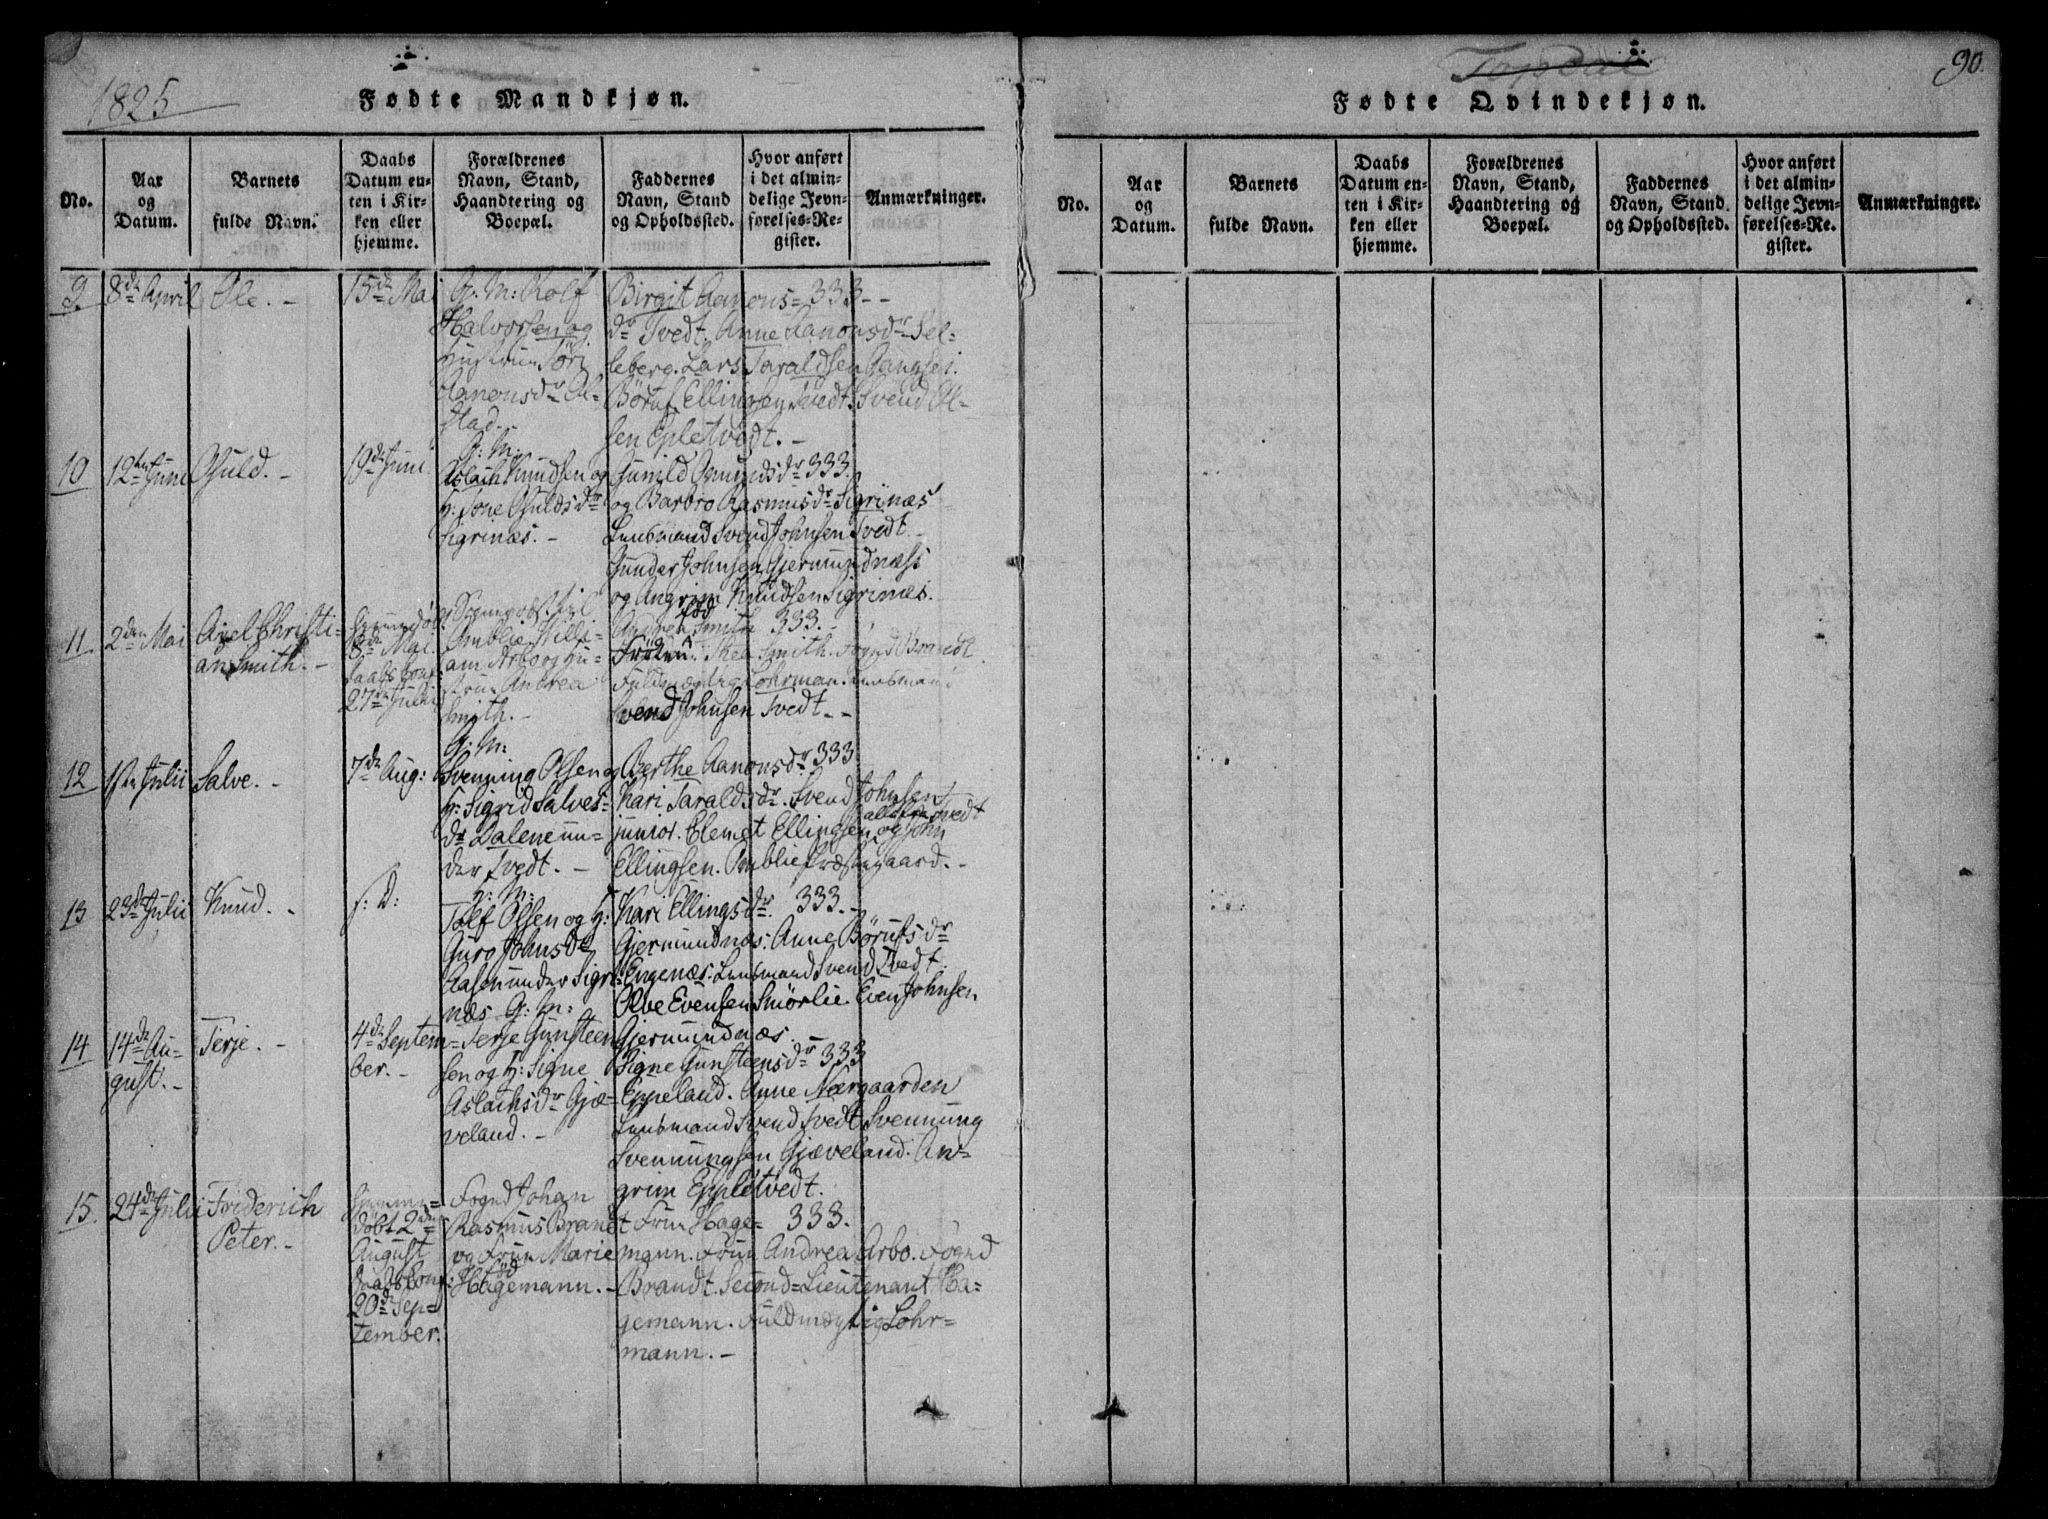 1825
Fødte Mandkjøn.
No.
Aar
og
Datum.
Barnets
fulde Navn.
Daabs
Datum en-
ten i Kir-
ken eller
hjemme.
Forældrenes
Navn, Stand,
Haandtering og
Boepæl.
Faddernes
Navn, Stand
og Opholdssted.
Hvor anført
i det almin-
delige Jevn-
førelses-Re-
gister.
Anmærkninger.
9 8de April Ole. - 15de Mai G: M: Rolf
Halvorsen og
Hustrue Töri
Aanonsdr
stad. -
Birgit Aanons= 333 - -
dr Tvedt. Anne Aanonsdr Sel=
leberg. Lars Taraldsen
Böruf Ellingsen Tvedt. Svend Ol=
sen Epletvedt. -
10 12te Juni Guld. - 19de Juni
G: M:
Aslach Knudsen og
H: Tone Guldsdr
Sigrinæs. -
Gunild Omundsdr 333.
og Barbro Rasmusdr Sigrinæs
Lensmand Svend Johnsen Tvedt.
Gunder Johnsen Gjermundnæss
og Angrim Knudsen Sigrinæs.
11. 2den Mai Axel Christi=
an Smith. -
8de Mai.
27de Julii
Amblie Willi=
am Arbo og Hu=
strue Andrea
Smith. -
Smith 333. -
Fröken Thea Smith. Fogd Brandt
Fuldmægtig Lohrman. Lensmand
Svend Johnsen Tvedt. -
12 1ste Julii Salve. - 7de Aug:
G: M:
Svenning Olsen og
H: Sigrid Salves=
dr Dalene un=
der Tvedt. -
Berthe Aanonsdr 333
Kari Taraldsdr. Svend Johnsen
junior. Clemet Ellingsen alle fra Tvedt og John
Ellingsen. Amblie Præstegaard. -
13 23de Julii Knud. - s: D:
G: M:
Tolf Olsen og H:
Guro Johnsdr
Aasen under Sigri=
næs
Kari Ellingsdr. 333. -
Gjermundnæs: Anne Börufsdr
Engenæs. Lensmand Svend Tvedt.
Olve Evensen Smörlie. Even Johnsen
Gjermundnæs. -
14 14de Au=
gust. -
Terje. - 4de Septem=
ber. -
G: M:
Terje Gunsteen
sen og H: Signe
Aslachsdr Gjæ=
veland. -
Signe Gunsteensdr 333
Eppeland. Anne Nærgaarden
Lensmand Svend Tvedt Svennung
Svennungsen Gjæveland. An=
grim Epletvedt.
15. 24de Julii Friderich
Peter. -
döbt 2den
August
20de Sep=
tember.
Fogd Johan
Rasmus Brandt
og Frue Marie
föd
Hagemann. -
Frue Hage= 333.
mann. Frue Andrea Arbo. Fogd
Brandt. Second=Lieutenant Ha=
gemann. Fuldmægtig Lohr=
mann. -
Topdal
90.
Fødte Qvindekjøn.
No.
Aar
og
Datum.
Barnets
fulde Navn.
Daabs
Datum en-
ten i Kir-
ken eller
hjemme.
Forældrenes
Navn, Stand,
Haandtering og
Boepæl.
Faddernes
Navn, Stand
og Opholdssted.
Hvor anført
i det almin-
delige Jevn-
førelses-Re-
gister.
Anmærkninger.